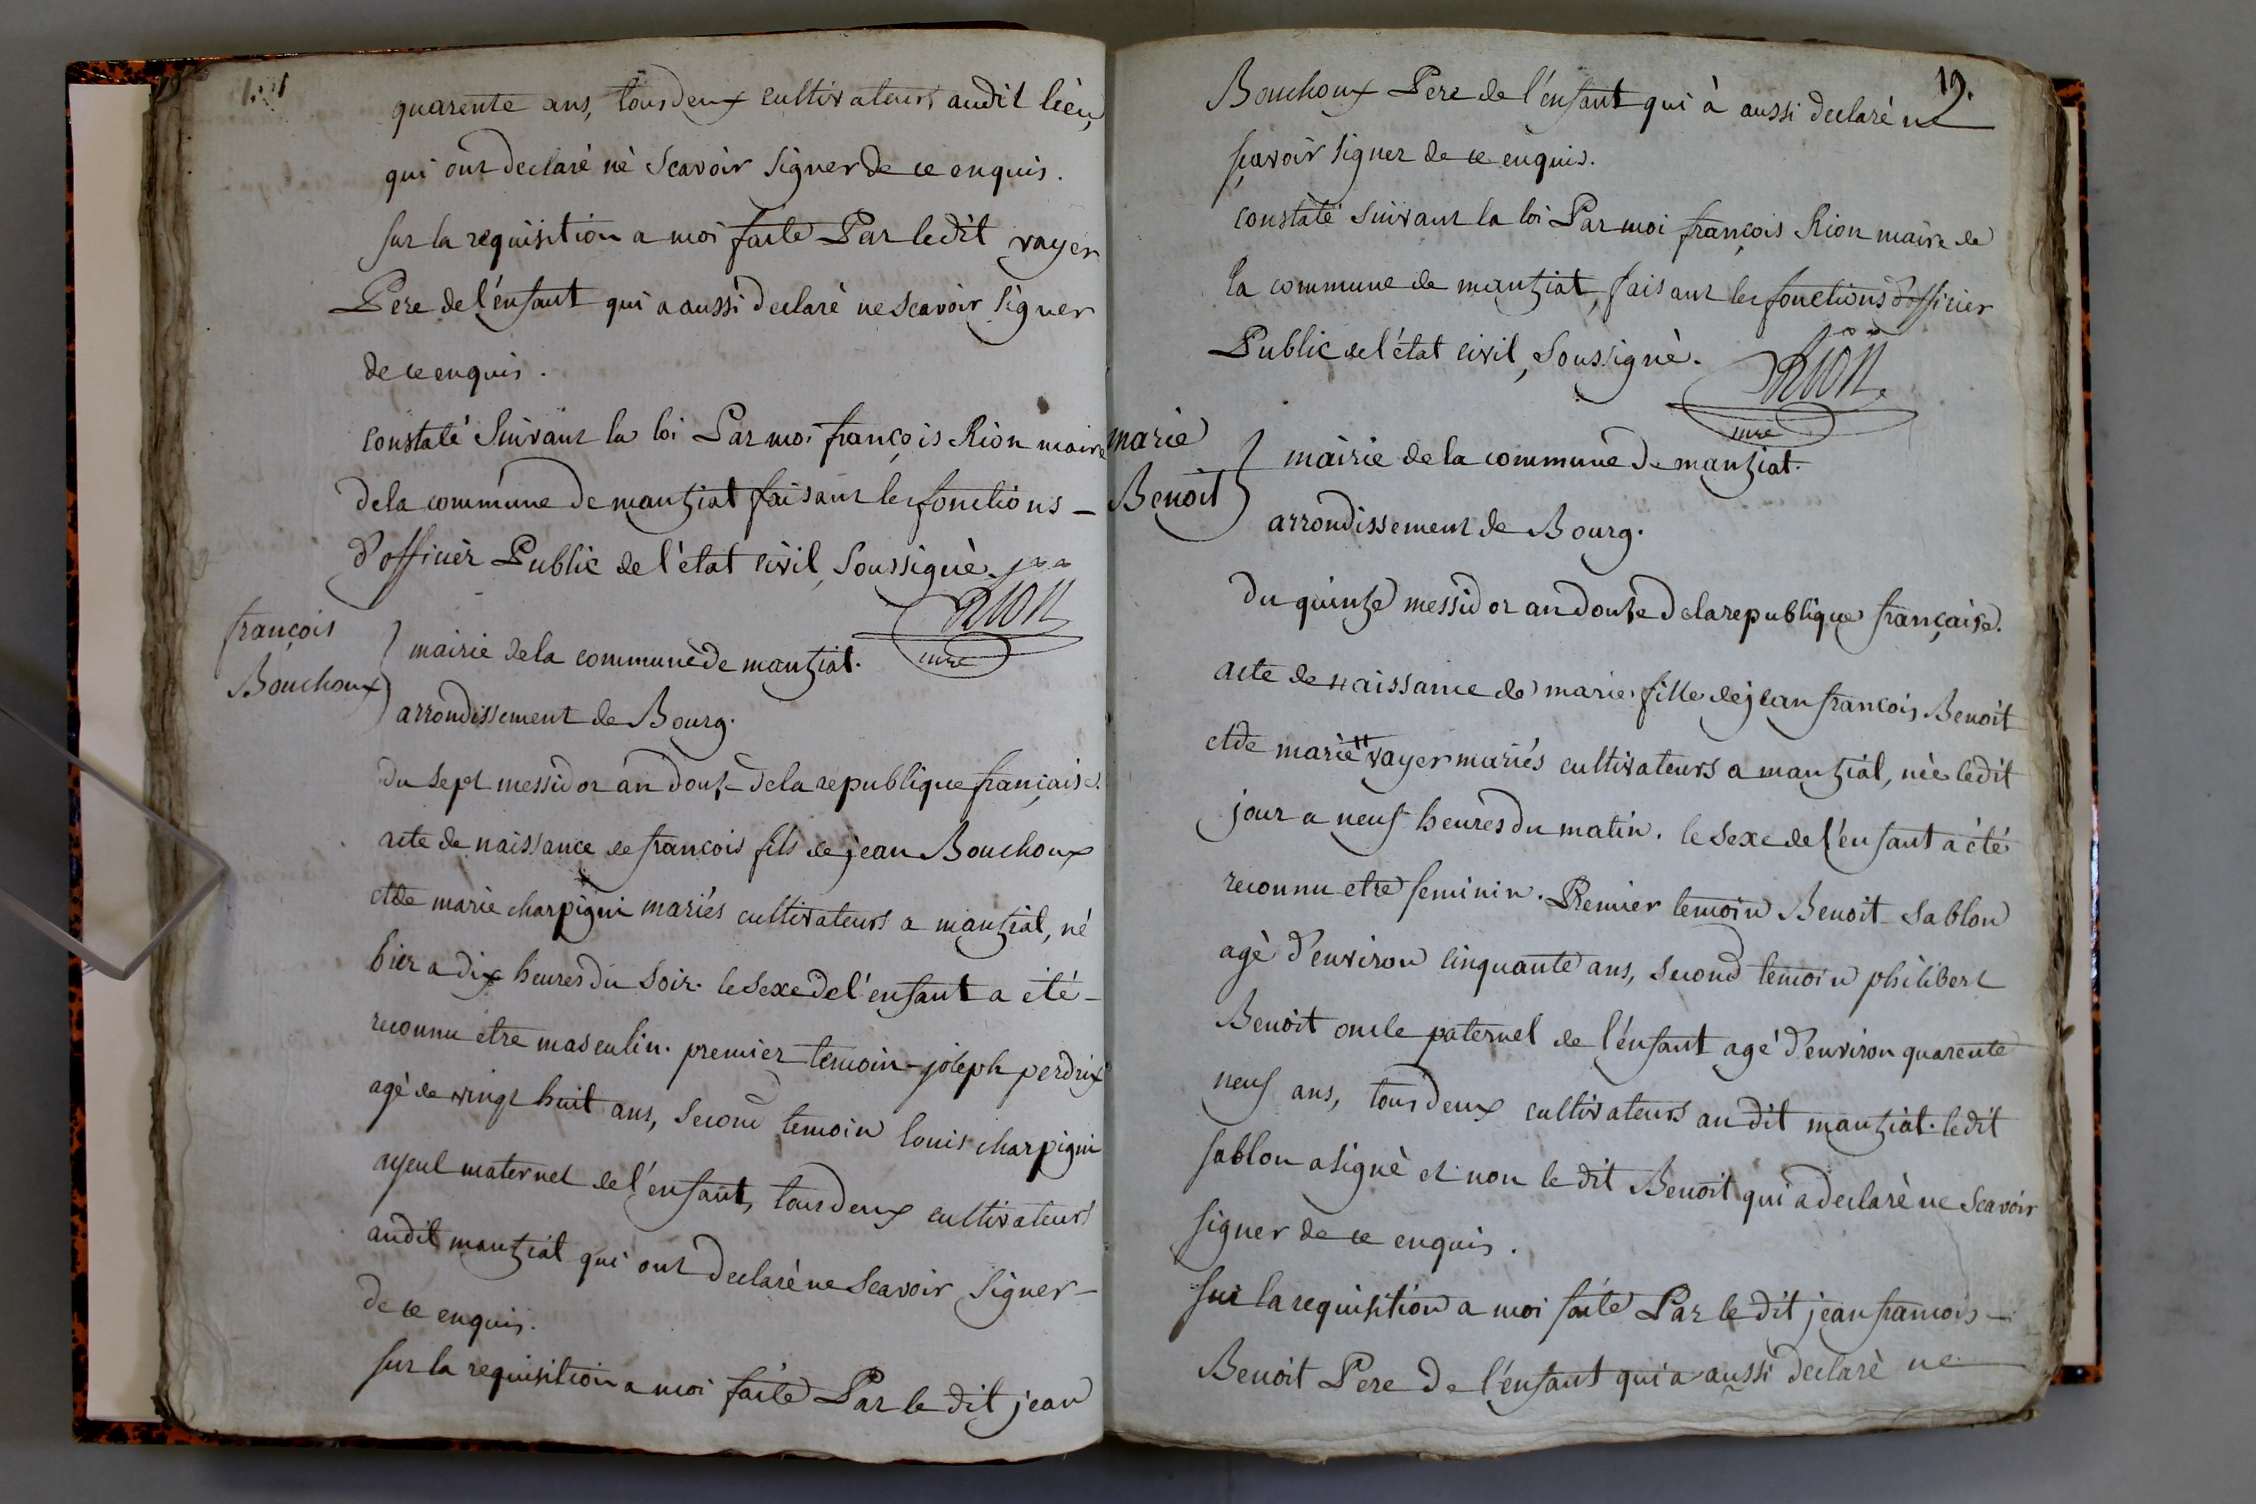 quarente ans, tous deux cultivateurs audit lieu,
qui ont declaré né scavoir signer de ce enquis.
sur la requisition a moi faite Par ledit vayer
Pere de l'énfant qui a aussi declaré ne scavoir signer
de ce enquis.
constaté suivant la loi Par moi françois Rion maire
de la commune de mantziat faisant les fonctions -
d'officier Public de l'état civil, soussigné.
Rion
mre
françois
Bouchoux
mairie de la commune de mantziat.
arrondissement de Bourg.
du sept messidor an douze de la republique française.
acte de naissance de françois fils de jean Bouchoux
et de marie charpigni mariés cultivateurs a mantziat, né
hier a dix heures du soir. le sexe de l'énfant a été -
reconnu etre masculin. premier temoin - joseph perdrix
agé de vingt huit ans, second temoin louis charpigni
ayeul maternel de l'énfant, tous deux cultivateurs
audit mantziat qui ont declaré ne scavoir signer -
de ce enquis.
sur la requisition a moi faite Par le dit jean
19.
Bouchoux Pere de l'énfant qui à aussi declaré ne
sçavoir signer de ce enquis.
constaté suivant la loi Par moi françois Rion maire de
la commune de mantziat, faisant les fonctions d'officier
Public de l'état civil, soussigné.
Rion
mre
marie
Benoit
mairie de la commune de mantziat.
arrondissement de Bourg.
du quinze messidor an douze de la republique française.
acte de naissance de marie fille de jean françois Benoit
et de marie vayer mariés cultivateurs a mantziat, née ledit
jour a neuf heures du matin. le sexe de l'énfant a été
reconnu etre feminin. Premier temoin Benoit Sablon
agé d'environ cinquante ans, second temoin philibert
Benoit oncle paternel de l'énfant agé d'environ quarente
neuf ans, tous deux cultivateurs au dit mantziat. ledit
sablon a signé et non le dit Benoit qui a declaré ne scavoir
signer de ce enquis.
sur la requisition a moi faite Par le dit jean francois -
Benoit Pere de l'énfant qui a aussi declaré ne